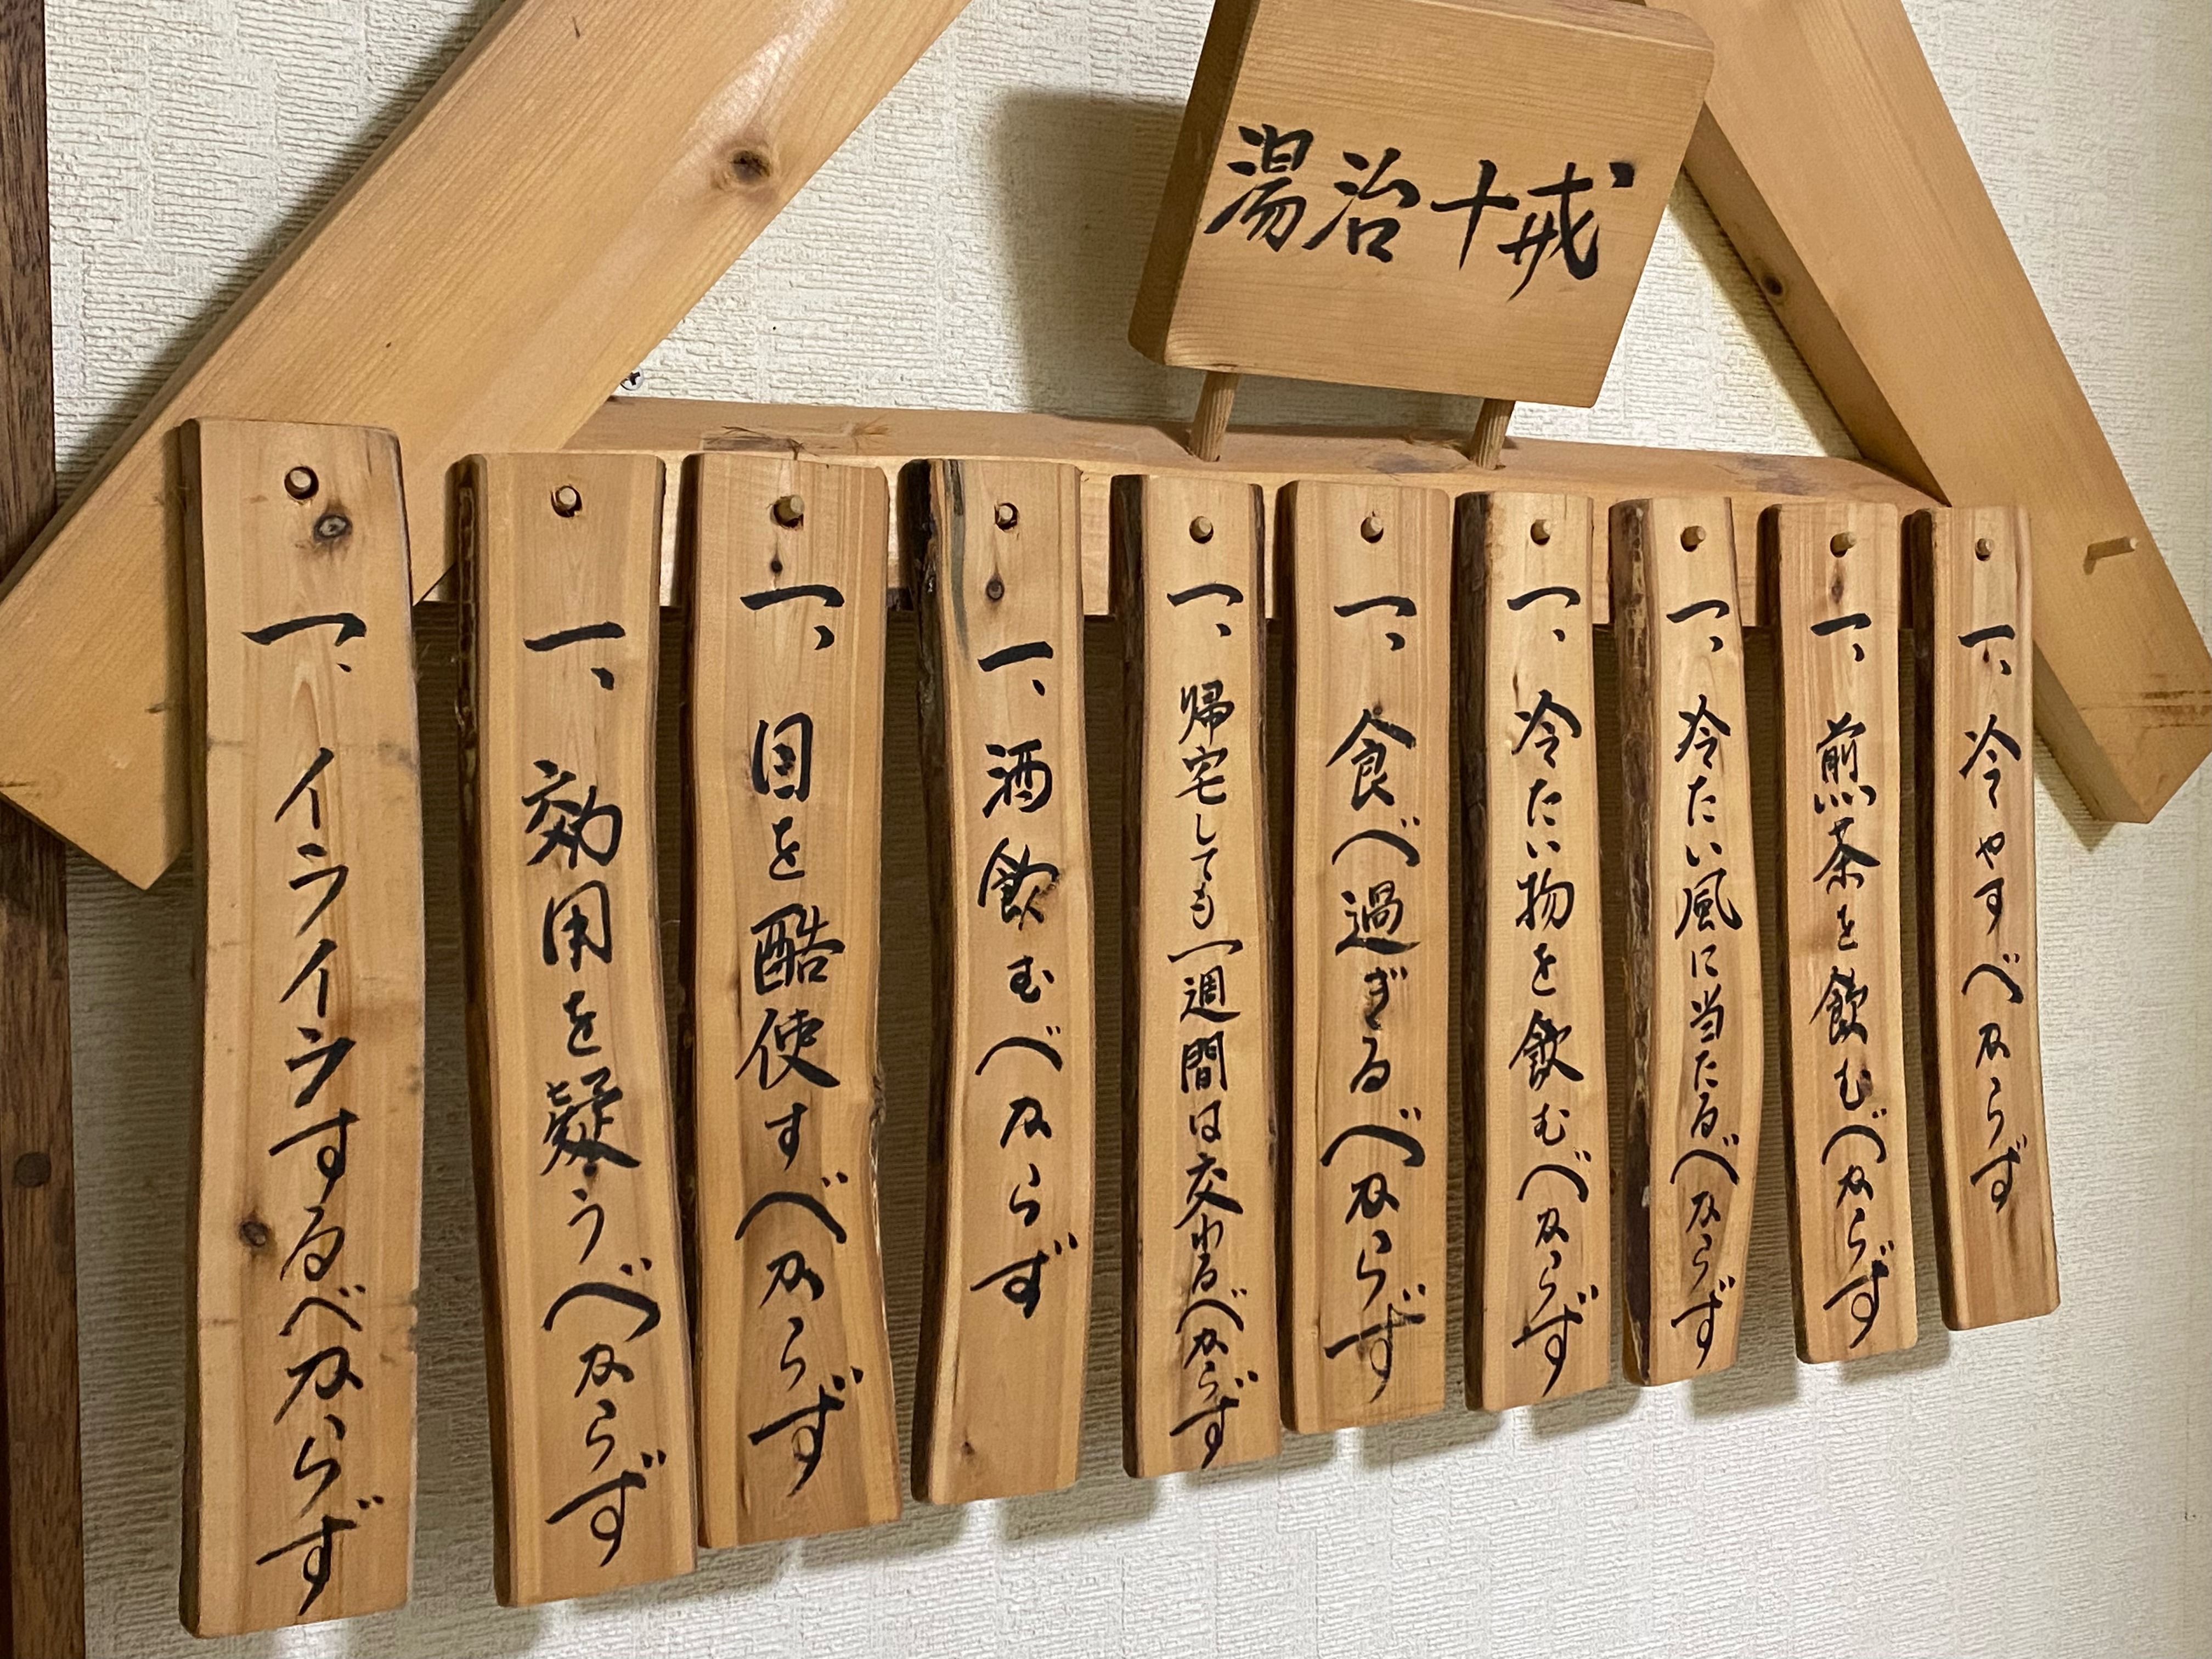 湯治十戒
一、冷やすべからず
一、煎茶を飲むべからず
一、冷たい風に当たるべからず
一、冷たい物を飲むべからず
一、食べ過ぎるべからず
一、帰宅しても一週間は交わるべからず
一、酒飲むべからず
一、目を酷使すべからず
一、効用を疑うべからず
一、イライラするべからず